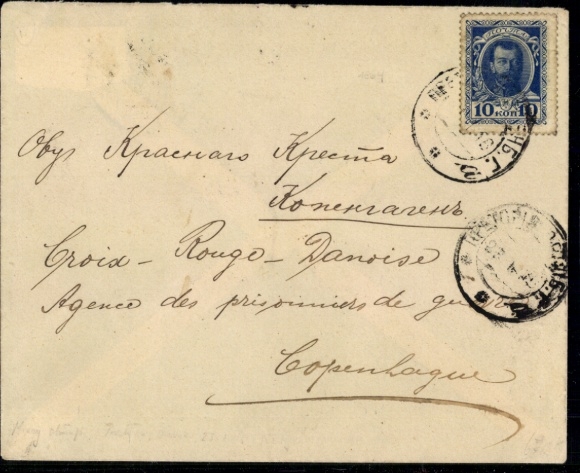 ПОЧТА
10 КОП 10
Овух Краснаго Креста
Копенгагенъ
Croix - Rouge - Danoise
Agence des prisonniers de guerre
Copenhague